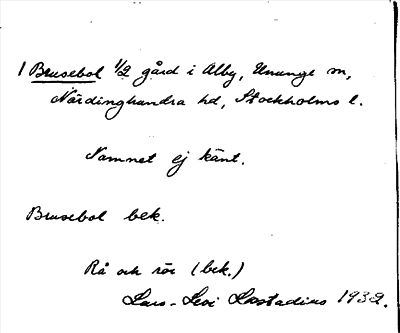 1 Brusebol 1/2 gård i Alby, Ununge sn,
Närdinghundra hd, Stockholms l.
Namnet ej känt.
Brusebol bek.
Rå och rör (bek.)
Lars-Levi Læstadius 1932.